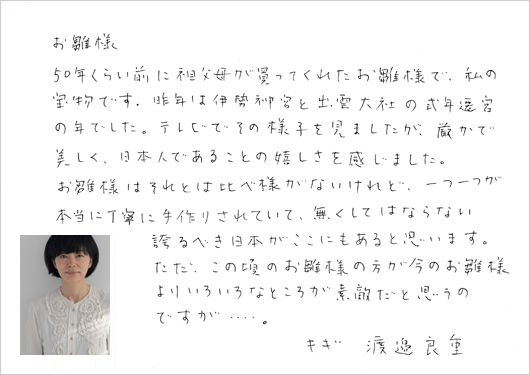 お雛様
50年くらい前に祖父母が買ってくれたお雛様で、私の
宝物です。昨年は伊勢神宮と出雲大社の式年遷宮
の年でした。テレビでその様子を見ましたが、厳かで
美しく、日本人であることの嬉しさを感じました。
お雛様はそれとは比べ様がないけれど、一つ一つが
本当に丁寧に手作りされていて、無くしてはならない
誇るべき日本がここにもあると思います。
ただ、この頃のお雛様の方が今のお雛様
よりいろいろなところが素敵だと思うの
ですが‥‥。
キギ 渡邉良重